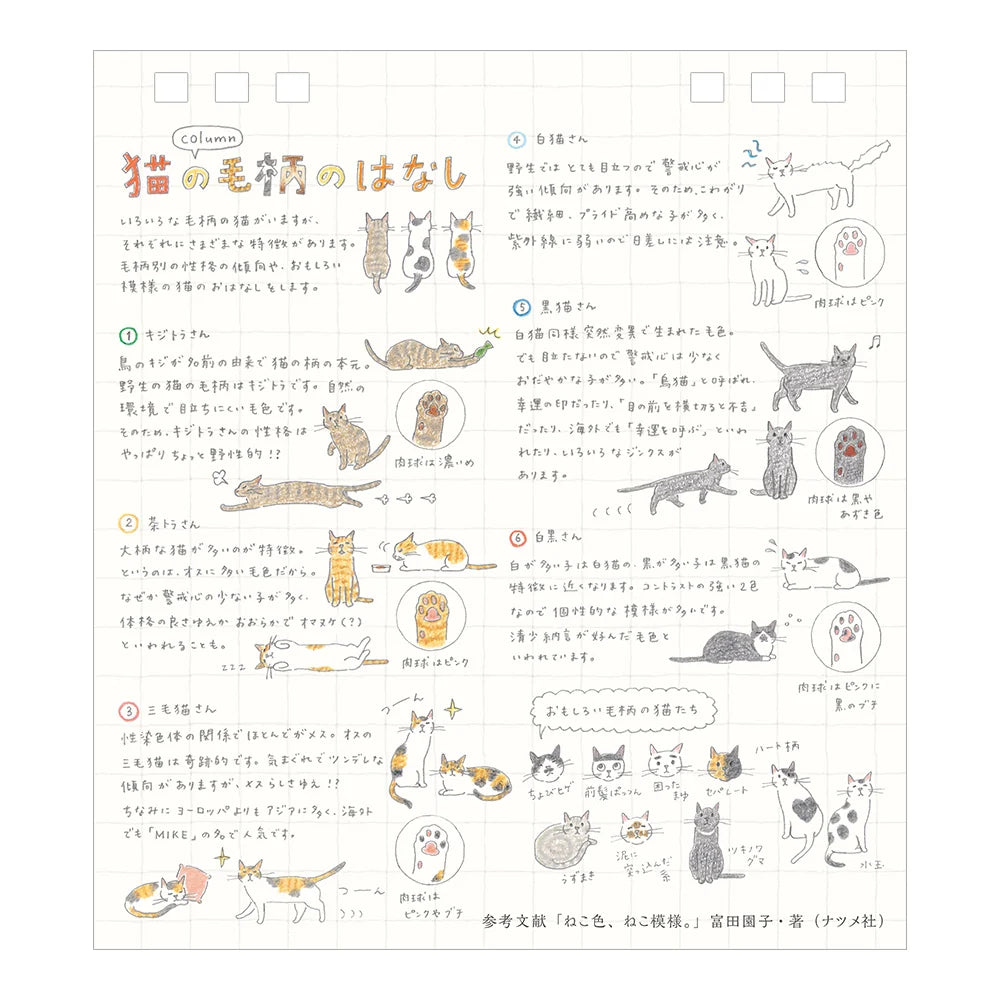 column
猫の毛柄のはなし
いろいろな毛柄の猫がいますが、
それぞれにさまざまな特徴があります。
毛柄別の性格の傾向や、おもしろい
模様の猫のおはなしをします。
① キジトラさん
鳥のキジが名前の由来で猫の柄の本元。
野生の猫の毛柄はキジトラです。自然の
環境で目立ちにくい毛色です。
そのため、キジトラさんの性格は
やっぱりちょっと野性的!?
肉球は濃いめ
② 茶トラさん
大柄な猫が多いのが特徴。
というのは、オスに多い毛色だから。
なぜか警戒心の少ない子が多く、
体格の良さゆえんかおおらかでオマヌケ(?)
といわれることも。
zzz
肉球はピンク
③ 三毛猫さん
性染色体の関係でほとんどがメス。オスの
三毛猫は奇跡的です。気まぐれでツンデレな
傾向がありますが、メスらしさゆえ!?
ちなみにヨーロッパよりもアジアに多く、海外
でも「MIKE」の名で人気です。
つーん
つーん
肉球は
ピンクやブチ
④ 白猫さん
野生ではとても目立つので警戒心が
強い傾向があります。そのため、こわがり
で繊細、プライド高めな子が多く、
紫外線に弱いので日差しには注意。
zzz
肉球はピンク
⑤ 黒猫さん
白猫同様突然変異で生まれた毛色。
でも目立たないので警戒心は少なく
おだやかな子が多い。「烏猫」と呼ばれ、
幸運の印だったり、「目の前を横切ると不吉」
だったり、海外でも「幸運を呼ぶ」といわ
れたり、いろいろなジンクスが
あります。
肉球は黒や
あずき色
⑥ 白黒さん
白が多い子は白猫の、黒が多い子は黒猫の
特徴に近くなります。コントラストの強い2色
なので個性的な模様が多いです。
清少納言が好んだ毛色と
いわれています。
肉球はピンクに
黒のブチ
おもしろい毛柄の猫たち
ちょびヒゲ
前髪ぱっつん
困った
まゆ
セパレート
ハート柄
うずまき
泥に
突っ込んだ
系
ツキノワ
グマ
水玉
参考文献「ねこ色、ねこ模様。」富田園子・著（ナツメ社）